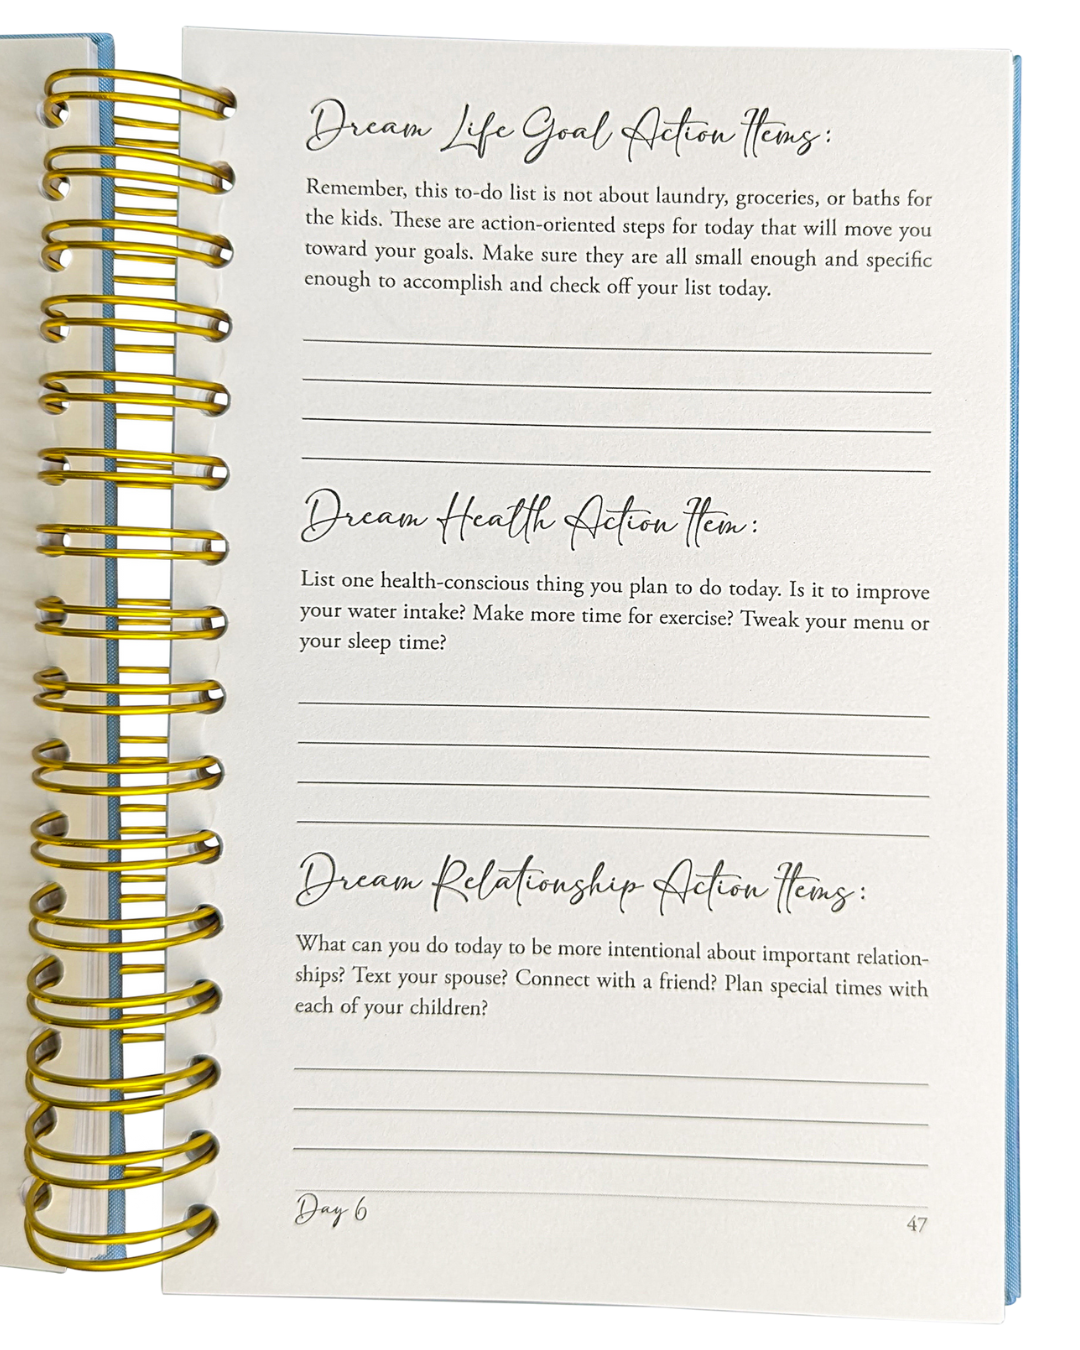 Dream Life Goal Action Items:
Remember, this to-do list is not about laundry, groceries, or baths for
the kids. These are action-oriented steps for today that will move you
toward your goals. Make sure they are all small enough and specific
enough to accomplish and check off your list today.
Dream Health Action Item:
List one health-conscious thing you plan to do today. Is it to improve
your water intake? Make more time for exercise? Tweak your menu or
your sleep time?
Dream Relationship Action Items:
What can you do today to be more intentional about important relation-
ships? Text your spouse? Connect with a friend? Plan special times with
each of your children?
Day 6
47